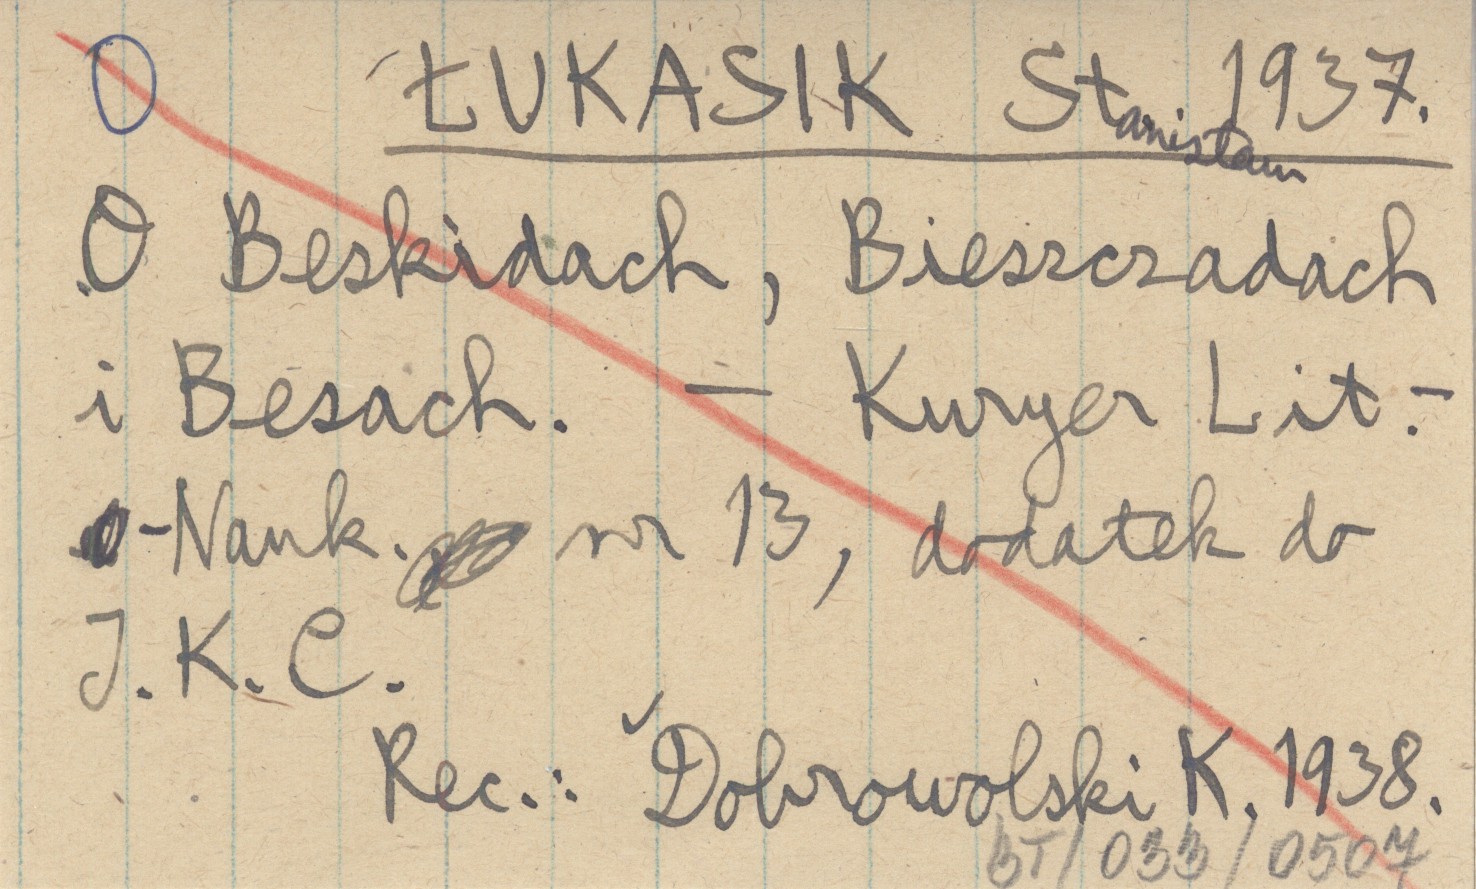 O ŁUKASIK Stanisław 1937.
O Beskidach, Bieszczadach
i Besach. — Kuryer Lit.-
-Nauk. nr 13, dodatek do
J.K.C.
Rec.: Dobrowolski K. 1938.
BT/033/0507